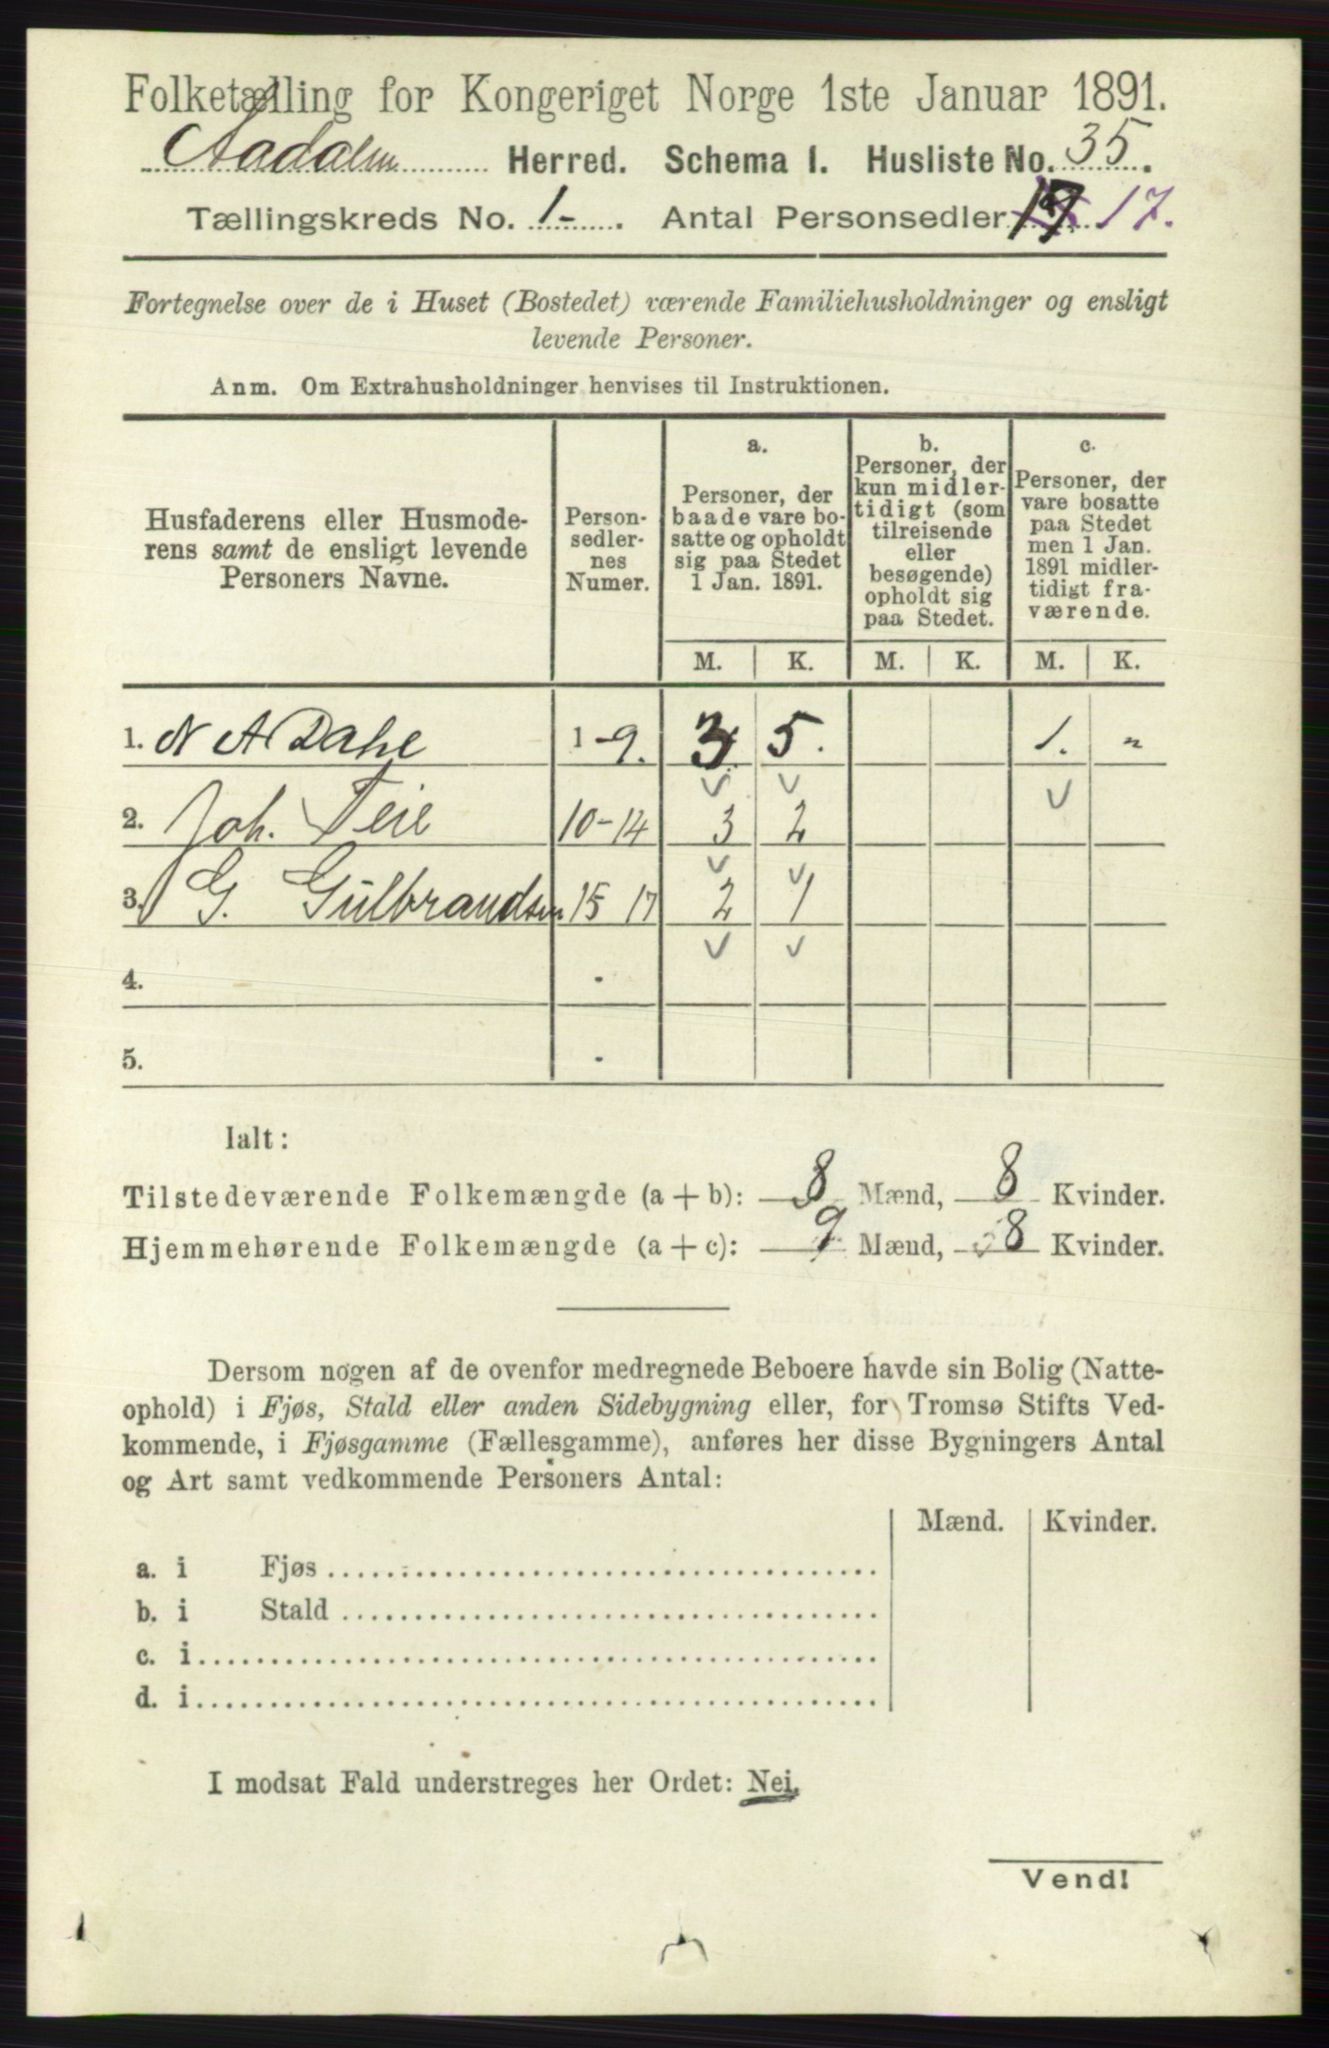 Folketælling for Kongeriget Norge 1ste Januar 1891.
Aadalen Herred. Schema I. Husliste No. 35.
Tællingskreds No. 1-. Antal Personsedler 17 17.
Fortegnelse over de i Huset (Bostedet) værende Familiehusholdninger og ensligt
levende Personer.
Anm. Om Extrahusholdninger henvises til Instruktionen.
Husfaderens eller Husmode-
rens samt de ensligt levende
Personers Navne.
Person-
sedler-
nes
Numer.
a.
Personer, der
baade vare bo-
satte og opholdt
sig paa Stedet
1 Jan. 1891.
b.
Personer, der
kun midler-
tidigt (som
tilreisende
eller
besøgende)
opholdt sig
paa Stedet.
c.
Personer, der
vare bosatte
paa Stedet
men 1 Jan.
1891 midler-
tidigt fra-
værende.
M. K. M. K. M. K.
1. N A Dahl 1-9. 3 5. 1. "
2. Joh. Teie 10-14 3 2
3. G. Gulbrandsen 15 17 2 1
4. -
5. -
Ialt:
Tilstedeværende Folkemængde (a + b): 8 Mænd, 8 Kvinder.
Hjemmehørende Folkemængde (a + c): 9 Mænd, 8 Kvinder.
Dersom nogen af de ovenfor medregnede Beboere havde sin Bolig (Natte-
ophold) i Fjøs, Stald eller anden Sidebygning eller, for Tromsø Stifts Ved-
kommende, i Fjøsgamme (Fællesgamme), anføres her disse Bygningers Antal
og Art samt vedkommende Personers Antal:
Mænd. Kvinder.
a. i Fjøs
b. i Stald
c. i
d. i
I modsat Fald understreges her Ordet: Nei.
Vend!